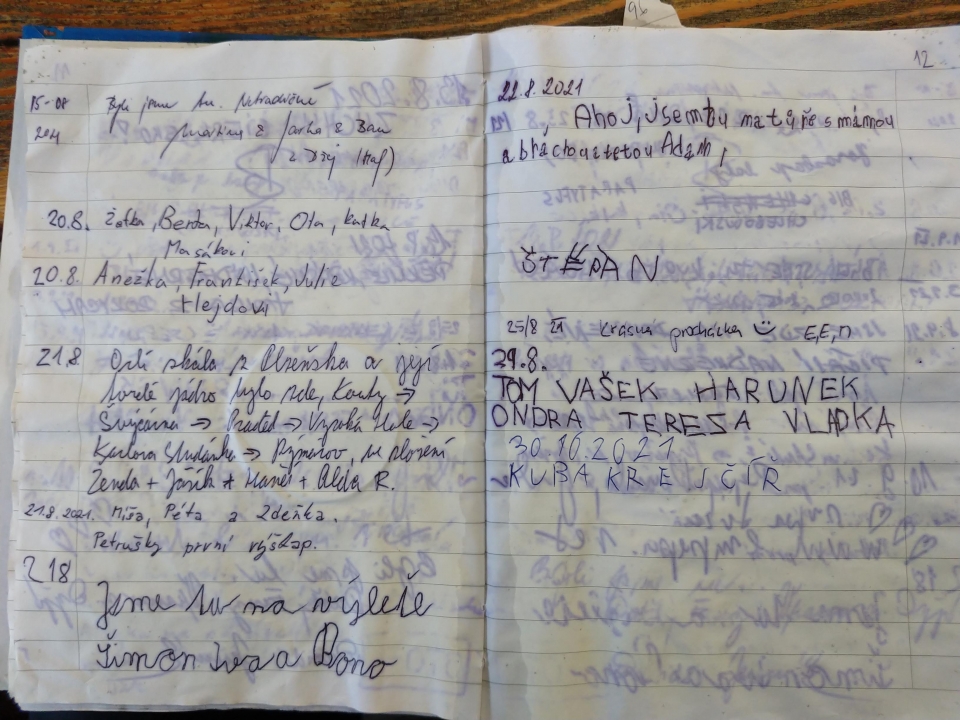 96
15-08 Byli jsme tu. Netradičně
2021 Martina & Jarka & Bau
z
20.8. Žofka, Berta, Viktor, Ota, Katka
Masákovi
20.8. Anežka, František, Julie
Hejdovi
21.8 Orlí skála z Plzeňska a její
tvrdé jádro bylo zde, Kouty →
Švýcárna → Praděd → Vysoká Hole →
Karlova Studánka → Rýmařov, ve složení
Zenda + Jášík + Haneš + Alda R.
21.8.2021. Míša, Péťa a Zdeňka.
Petrušky první výšlap.
218
Jsme tu na výletě
Šimon Iva a Bono
12
22.8.2021
Ahoj, jsem tu na túře s mámou
a bráchou a tetou Adam,
ŠTĚPÁN
25/8 21 krásná procházka E,E,D
29.8.
TOM VAŠEK HARUNEK
ONDRA TEREZA VLADKA
30.10.2021
KUBA KREJČÍŘ